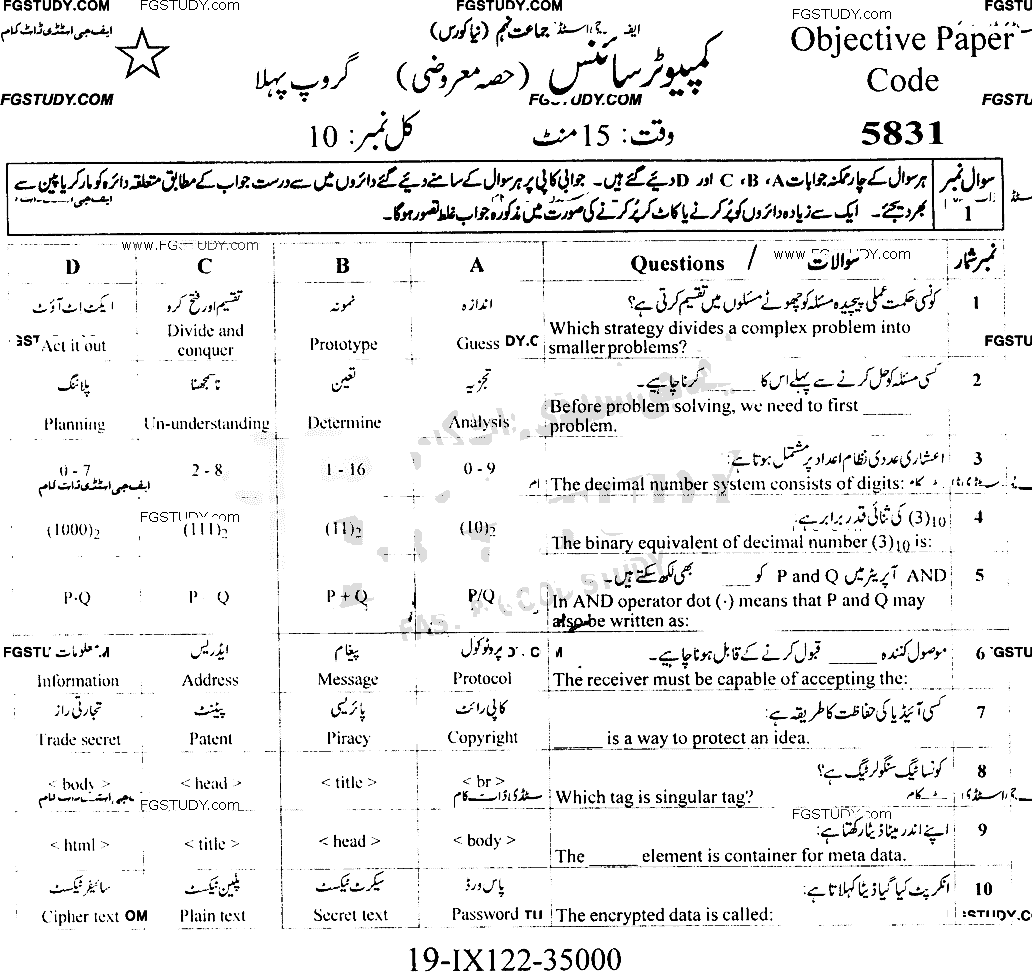 FGSTUDY.COM FGSTUDY.COM FGSTU
ایف جی اسٹڈی ڈاٹ کام جماعت نہم (نیا کورس) Objective Paper
کمپیوٹر سائنس (حصہ معروضی) گروپ پہلا Code
FGSTUDY.COM FGSTU
5831 وقت: 15 منٹ کل نمبر: 10
سوال نمبر ہر سوال کے چار ممکنہ جوابات A، B، C اور D دیئے گئے ہیں۔ جوابی کاپی پر ہر سوال کے سامنے دیئے گئے دائروں میں سے درست جواب کے مطابق متعلقہ دائرہ کو مارکر یا پین سے
1 بھر دیجئے۔ ایک سے زیادہ دائروں کو پُر کرنے یا کاٹ کر پُر کرنے کی صورت میں مذکورہ جواب غلط تصور ہوگا۔
D C B A Questions / سوالات نمبر شمار
ایکٹ اٹ آؤٹ تقسیم اور فتح کرو نمونہ اندازہ کونسی حکمت عملی پیچیدہ مسئلہ کو چھوٹے مسئلوں میں تقسیم کرتی ہے؟ 1
Act it out Divide and conquer Prototype Guess Which strategy divides a complex problem into
smaller problems?
پلاننگ ناسمجھنا تعین تجزیہ کسی مسئلہ کو حل کرنے سے پہلے اس کا _____ کرنا چاہیے۔ 2
Planning Un-understanding Determine Analysis Before problem solving, we need to first _____
problem.
اعشاری عددی نظام اعداد پر مشتمل ہوتا ہے: 3
0 - 7 2 - 8 1 - 16 0 - 9 The decimal number system consists of digits:
ایف جی اسٹڈی ڈاٹ کام
FGSTUDY.com
(3)10 کی ثنائی قدر برابر ہے: 4
(1000)2 (111)2 (11)2 (10)2 The binary equivalent of decimal number (3)10 is:
AND آپریٹر میں P and Q کو _____ بھی لکھ سکتے ہیں۔ 5
P·Q P Q P + Q P/Q In AND operator dot (·) means that P and Q may
also be written as:
معلومات ایڈریس پیغام پروٹوکول موصول کنندہ _____ قبول کرنے کے قابل ہونا چاہیے۔ 6
Information Address Message Protocol The receiver must be capable of accepting the:
تجارتی راز پیٹنٹ پائریسی کاپی رائٹ کسی آئیڈیا کی حفاظت کا طریقہ ہے: 7
Trade secret Patent Piracy Copyright _____ is a way to protect an idea.
کونسا ٹیگ سنگولر ٹیگ ہے؟ 8
< body > < head > < title > < br > Which tag is singular tag?
FGSTUDY.com اسٹڈی ڈاٹ کام
FGSTUDY.com
اپنے اندر میٹا ڈیٹا رکھتا ہے: 9
< html > < title > < head > < body > The _____ element is container for meta data.
سائفر ٹیکسٹ پلین ٹیکسٹ سیکرٹ ٹیکسٹ پاس ورڈ انکرپٹ کیا گیا ڈیٹا کہلاتا ہے: 10
Cipher text Plain text Secret text Password The encrypted data is called:
19-IX122-35000